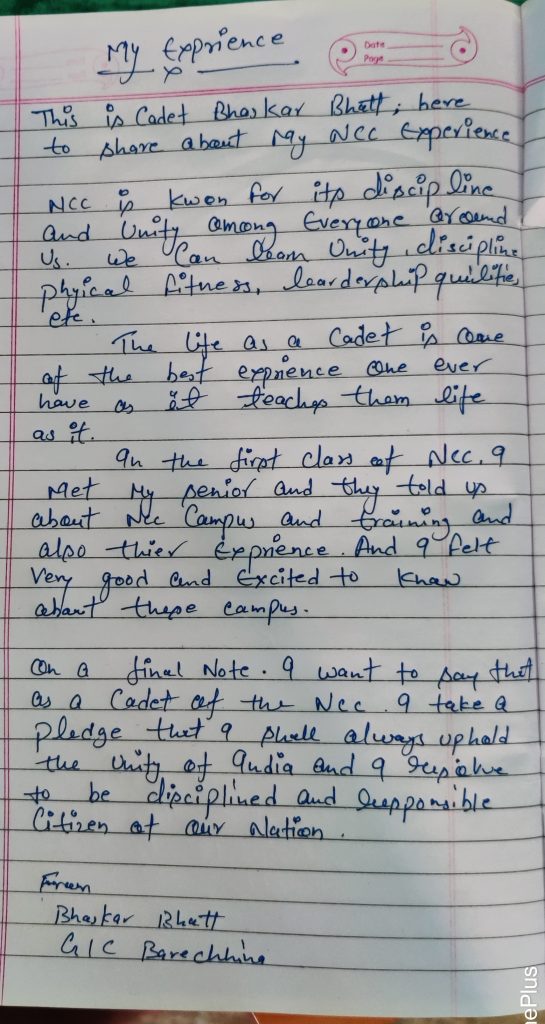 My Exprience
Date
Page
This is Cadet Bhaskar Bhatt, here
to share about My NCC Experience
NCC is kwon for its discipline
and Unity among Everyone around
Us. We Can learn Unity, discipline
phyical fitness, leardership quilities,
etc.
The life as a Cadet is one
of the best exprience one ever
have as it teaches them life
as it.
In the first class of Ncc. I
Met My senior and they told us
about Ncc Campus and training and
also thier Exprience. And I felt
Very good and Excited to know
about these campus.
On a final Note. I want to say that
as a Cadet of the Ncc. I take a
pledge that I shall always uphold
the Unity of India and I resolve
to be disciplined and responsible
Citizen of our Nation.
From
Bhaskar Bhatt
GIC Barechhina
ePlus